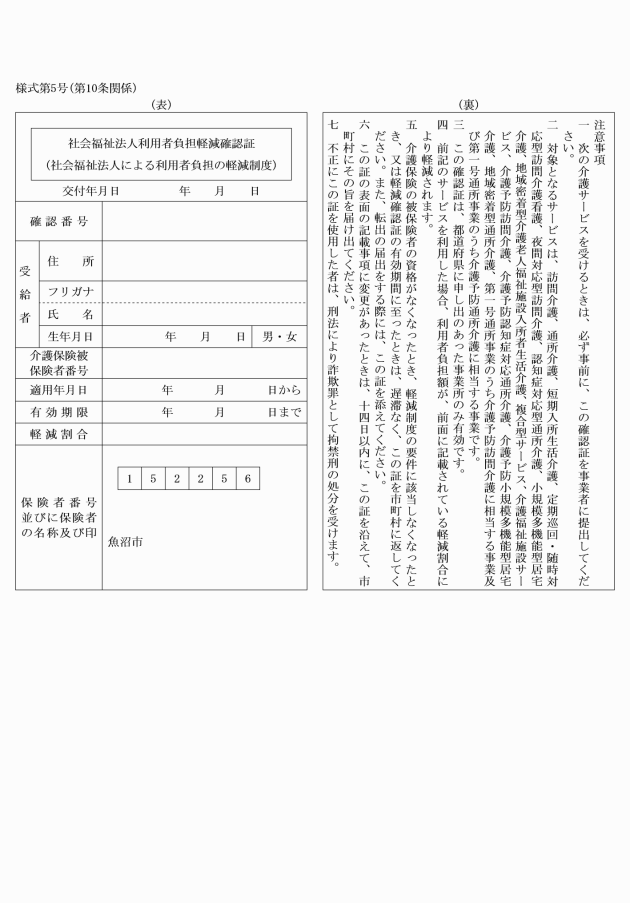 様式第5号(第10条関係)
(表)
社会福祉法人利用者負担軽減確認証
(社会福祉法人による利用者負担の軽減制度)
交付年月日　年　月　日
確認番号
受給者
住　所
フリガナ
氏　名
生年月日　年　月　日　男・女
介護保険被
保険者番号
適用年月日　年　月　日から
有効期限　年　月　日まで
軽減割合
保険者番号
並びに保険者
の名称及び印
1 5 2 2 5 6
魚沼市
(裏)
注意事項
一　次の介護サービスを受けるときは、必ず事前に、この確認証を事業者に提出してくだ
さい。
二　対象となるサービスは、訪問介護、通所介護、短期入所生活介護、定期巡回・随時対
応型訪問介護看護、夜間対応型訪問介護、認知症対応型通所介護、小規模多機能型居宅
介護、地域密着型介護老人福祉施設入所者生活介護、複合型サービス、介護福祉施設サー
ビス、介護予防訪問介護、介護予防認知症対応通所介護、介護予防小規模多機能型居宅
介護、地域密着型通所介護、第一号通所事業のうち介護予防訪問介護に相当する事業及
び第一号通所事業のうち介護予防通所介護に相当する事業です。
三　この確認証は、都道府県に申し出のあった事業所のみ有効です。
四　前記のサービスを利用した場合、利用者負担額が、前面に記載されている軽減割合に
より軽減されます。
五　介護保険の被保険者の資格がなくなったとき、軽減制度の要件に該当しなくなったと
き、又は軽減確認証の有効期間に至ったときは、遅滞なく、この証を市町村に返してく
ださい。また、転出の届出をする際には、この証を添えてください。
六　この証の表面の記載事項に変更があったときは、十四日以内に、この証を沿えて、市
町村にその旨を届け出てください。
七　不正にこの証を使用した者は、刑法により詐欺罪として拘禁刑の処分を受けます。